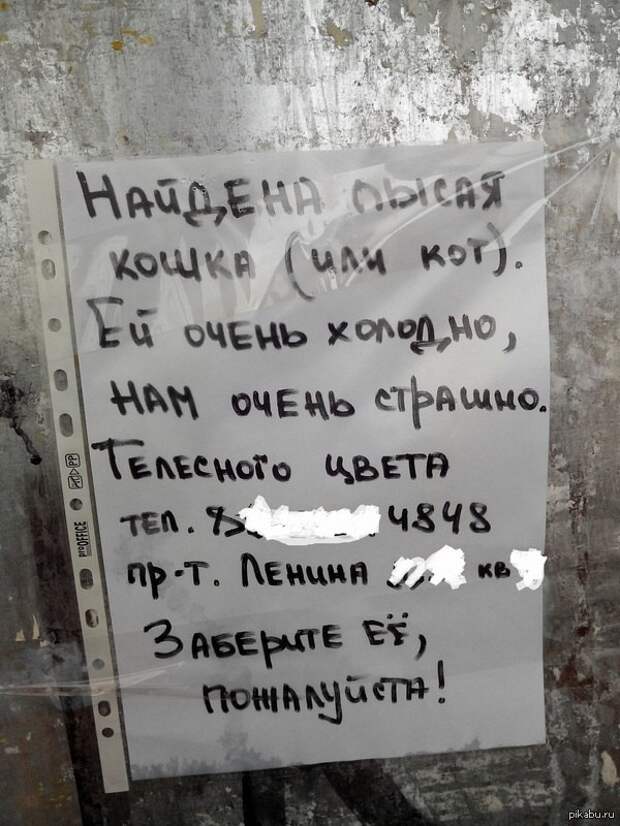 НАЙДЕНА ЛЫСАЯ
КОШКА (ИЛИ КОТ).
ЕЙ ОЧЕНЬ ХОЛОДНО,
НАМ ОЧЕНЬ СТРАШНО.
ТЕЛЕСНОГО ЦВЕТА
ТЕЛ. 8 4848
ПР-Т. ЛЕНИНА КВ
ЗАБЕРИТЕ ЕЁ,
ПОЖАЛУЙСТА!
PP
proOFFICE
pikabu.ru